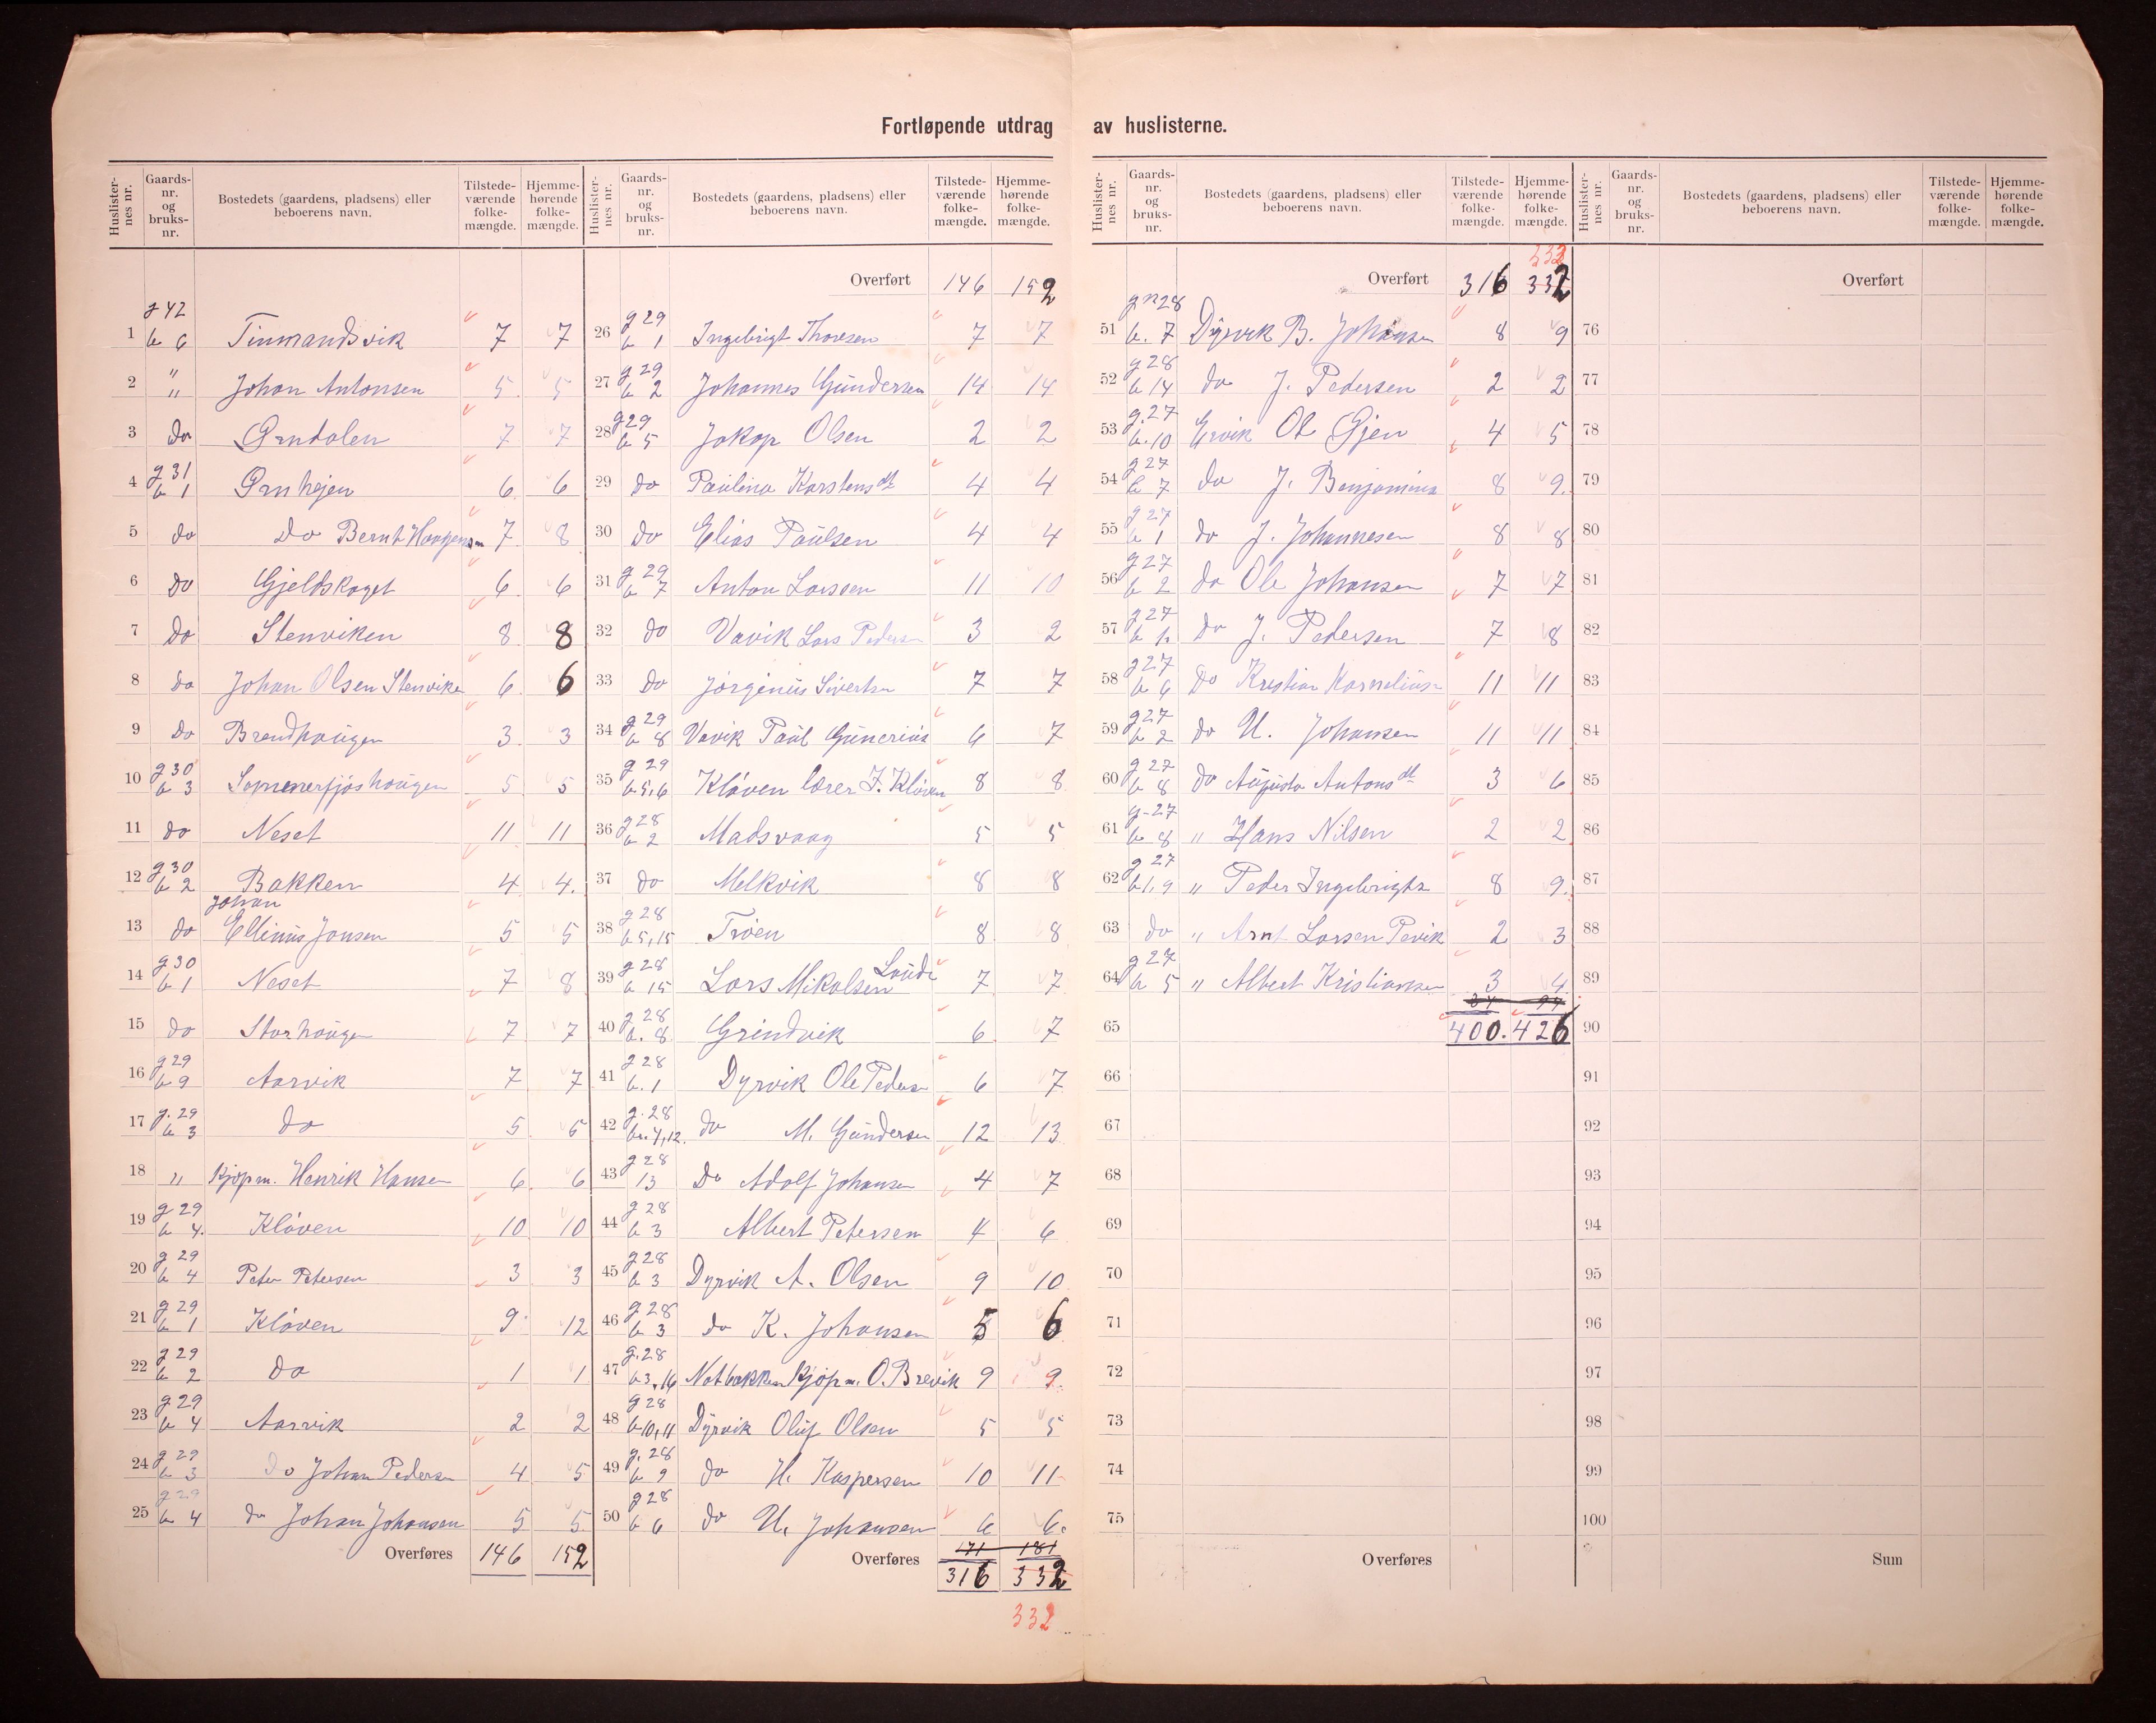 Fortløpende utdrag av huslisterne.
Huslister- nes nr. Gaards- nr. og bruks- nr. Bostedets (gaardens, pladsens) eller beboerens navn. Tilstede- værende folke- mængde. Hjemme- hørende folke- mængde.
1 g 42 b 6 Tinmandsvik 7 7
2 " " Johan Antonsen 5 5
3 do Grndalen 7 7
4 g 31 b 1 Grnhejen 6 6
5 do do Bernt Haagensen 7 8
6 do Gjeldskaget 6 6
7 do Stenviken 8 8
8 do Johan Olsen Stenviken 6 6
9 do Brandhaugen 3 3
10 g 30 b 3 Sommerfjøshaugen 5 5
11 do Neset 11 11
12 g 30 b 2 Bakken 4 4.
13 do Johan Ellinus Jonsen 5 5
14 g 30 b 1 Neset 7 8
15 do Storhaugen 7 7
16 g 29 b 9 Aarvik 7 7
17 g. 29 b 3 do 5 5
18 " Kjøpm. Henrik Hansen 6 6
19 g 29 b 4. Kløven 10 10
20 g 29 b 4 Peter Petersen 3 3
21 g 29 b 1 Kløven 9 12
22 g 29 b 2 do 1 1
23 g 29 b 4 Aarvik 2 2
24 g 29 b 3 do Johan Pedersen 4 5
25 g 29 b 4 do Johan Johansen 5 5
Overføres 146 152
Huslister- nes nr. Gaards- nr. og bruks- nr. Bostedets (gaardens, pladsens) eller beboerens navn. Tilstede- værende folke- mængde. Hjemme- hørende folke- mængde.
Overført 146 152
26 g 29 b 1 Ingebrigt Thoresen 7 7
27 g 29 b 2 Johannes Gundersen 14 14
28 g 29 b 5 Jakop Olsen 2 2
29 do Paulina Karstensdt 4 4
30 do Elias Paulsen 4 4
31 g 29 b 7 Anton Larssen 11 10
32 do Vavik Lars Pedersen 3 2
33 do Jørginus Sivertsen 7 7
34 g 29 b 8 Vavik Paul Gunerius 6 7
35 g 29 b 5,6 Kløven lærer J. Kløven 8 8
36 g 28 b 2 Madsvaag 5 5
37 do Melkvik 8 8
38 g 28 b 5,15 Trøen 8 8
39 g 28 b 15 Lars Mikalsen 7 7
40 g 28 b. 8 Grindvik 6 7
41 g 28 b. 1 Dyrvik Ole Pedersen 6 7
42 g. 28 br. 4,12. do M. Gundersen 12 13
43 g 28 13 Do Adolf Johansen 4 7
44 g 28 b 3 Albert Petersen 4 6
45 g 28 b 3 Dyrvik A. Olsen 9 10
46 g 28 b 3 do K. Johansen 5 6
47 g. 28 b 3,16 Notbakken Kjøpm. O. Brevik 9 9
48 g 28 b 10,11 Dyrvik Oluf Olsen 5 5
49 g. 28 b 9 do H. Kaspersen 10 11
50 g 28 b 6 do U. Johansen 6 6.
171 181
Overføres 316 332
332
Huslister- nes nr. Gaards- nr. og bruks- nr. Bostedets (gaardens, pladsens) eller beboerens navn. Tilstede- værende folke- mængde. Hjemme- hørende folke- mængde.
332
Overført 316 332
51 gn 28 b. 7 Dyrvik B. Johansen 8 9
52 g 28 b 14 do J. Pedersen 2 2
53 g. 27 b. 10 Ervik Ol Gjen 4 5
54 g 27 b 7 do J. Benjaminsen 8 9.
55 g 27 b 1 do J. Johannesen 8 8
56 g 27 b 2 do Ole Johansen 7 7
57 g 27 b 1. do J. Pedersen 7 8
58 g 27 b 6 do Kristian Kornelius 11 11
59 g 27 b 2 do U. Johansen 11 11
60 g 27 b 8 do Augusta Antonsdt 3 6
61 g-27 b 8 " Hans Nilsen 2 2
62 g 27 b 1,9 " Peder Ingebrigts 8 9.
63 do " Arnt Larsen Pevik 2 3
64 g 27 b 5 " Albert Kristiansen 3 4
65 400. 426
66
67
68
69
70
71
72
73
74
75
Overføres
Huslister- nes nr. Gaards- nr. og bruks- nr. Bostedets (gaardens, pladsens) eller beboerens navn. Tilstede- værende folke- mængde. Hjemme- hørende folke- mængde.
Overført
76
77
78
79
80
81
82
83
84
85
86
87
88
89
90
91
92
93
94
95
96
97
98
99
100
Sum